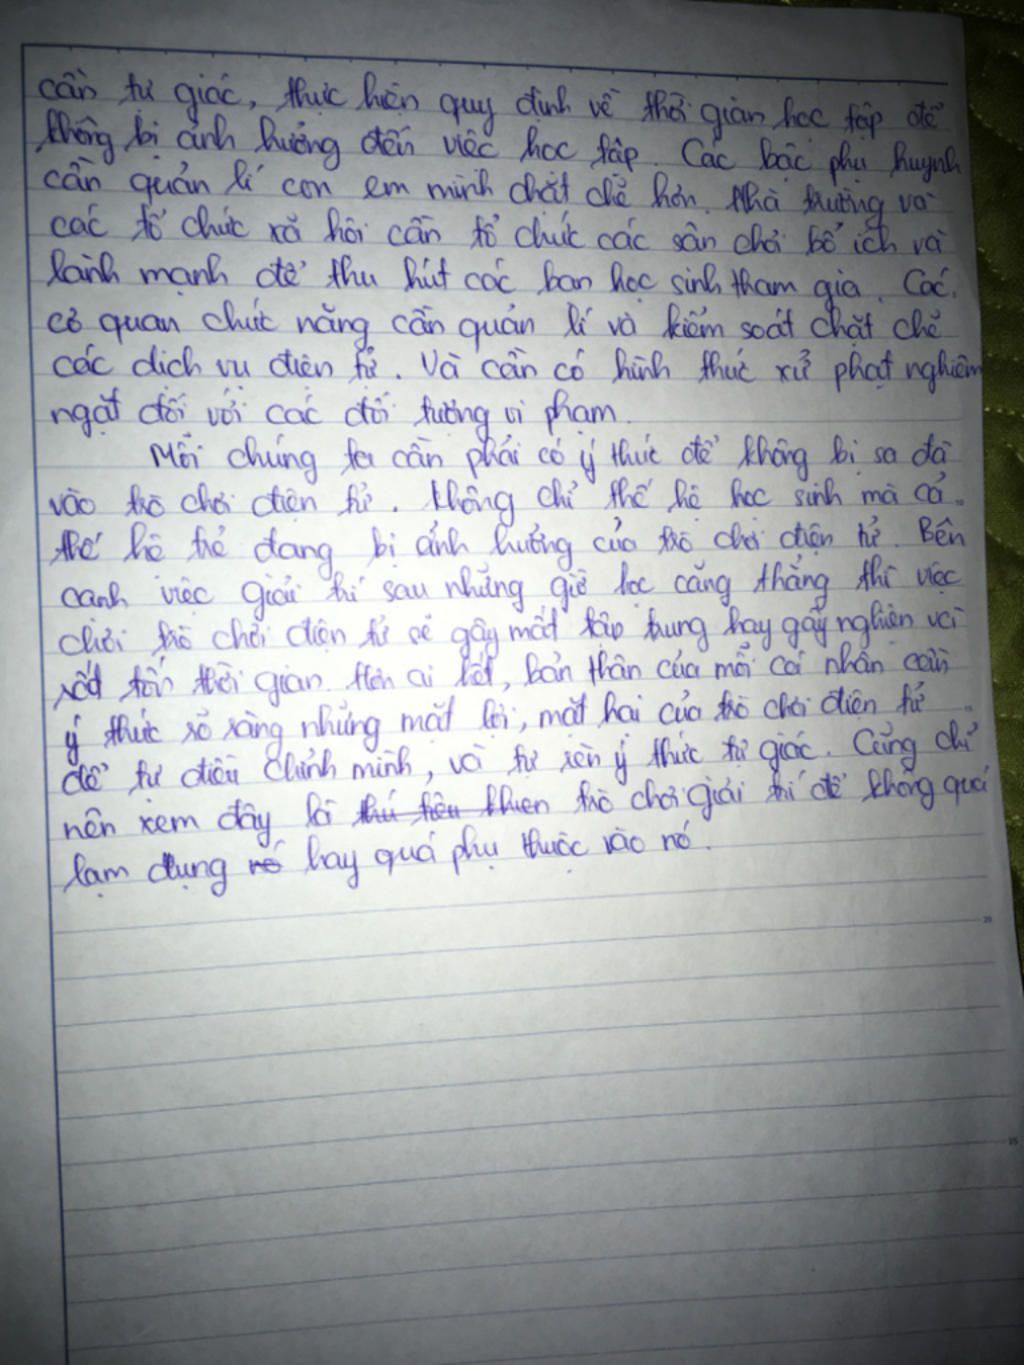 cần tự giác, thực hiện quy định về thời gian học tập để
không bị ảnh hưởng đến việc học tập. Các bậc phụ huynh
cần quản lí con em mình chặt chẽ hơn. Nhà trường và
các tổ chức xã hội cần tổ chức các sân chơi bổ ích và
lành mạnh để thu hút các bạn học sinh tham gia. Các
cơ quan chức năng cần quản lí và kiểm soát chặt chẽ
các dịch vụ điện tử. Và cần có hình thức xử phạt nghiêm
ngặt đối với các đối tượng vi phạm.
Mỗi chúng ta cần phải có ý thức để không bị sa đà
vào trò chơi điện tử. Không chỉ thế hệ học sinh mà cả
thế hệ trẻ đang bị ảnh hưởng của trò chơi điện tử. Bên
cạnh việc giải trí sau những giờ học căng thẳng thì việc
chơi trò chơi điện tử sẽ gây mất tập trung hay gây nghiện và
rất tốn thời gian. Hơn ai hết, bản thân của mỗi cá nhân cần
ý thức rõ ràng những mặt lợi, mặt hại của trò chơi điện tử
để tự điều chỉnh mình, và tự rèn ý thức tự giác. Cũng chỉ
nên xem đây là trò chơi giải trí để không quá
lạm dụng hay quá phụ thuộc vào nó.
20
25